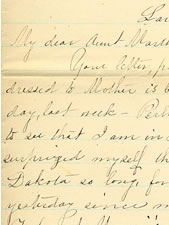 Lar
My dear Aunt Mart
Your letter, 
dressed to Mother is 
day, last week - Per
to see that I am in 
surprized myself th
Dakota so long for
yesterday since m